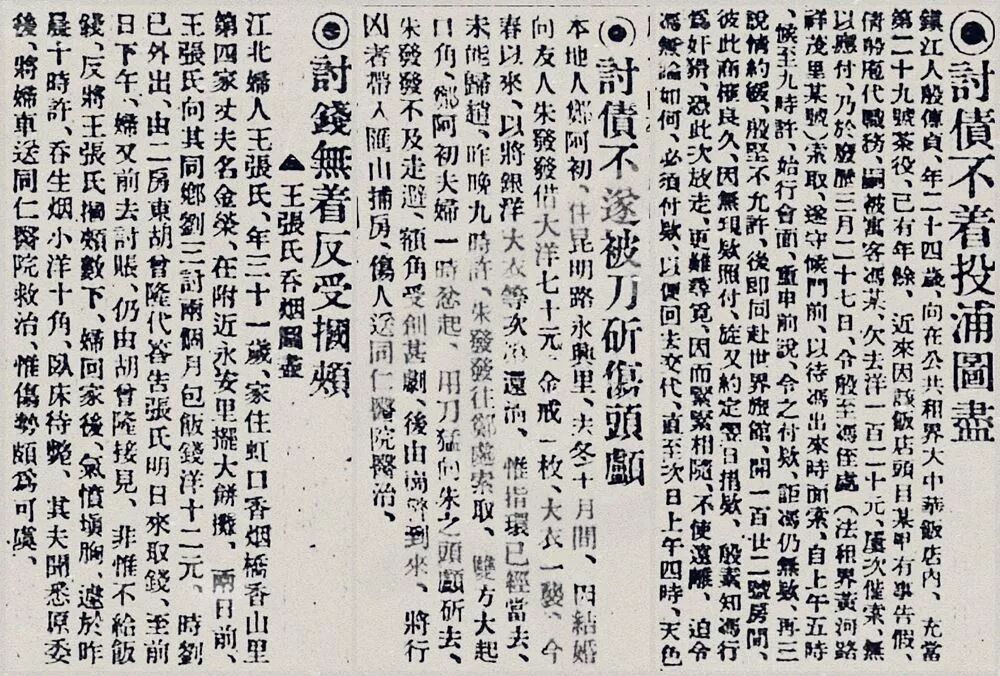 ◉討債不着投浦圖盡
鎮江人殷傳貞、年二十四歲、向在公共租界大中華飯店內、充當
第二十九號茶役、已有年餘、近來因該飯店頭目某甲有事告假、
倩殷庖代職務、嗣被寓客馮某、欠去洋一百二十元、屢次催索、無
以應付、乃於廢歷三月二十七日、令殷至馮侄處（法租界黃河路
祥茂里某號）索取、遂守候門前、以待馮出來時面索、自上午五時
、候至九時許、始行會面、重申前說、令之付欵、詎馮仍無欵、再三
說情約緩、殷堅不允許、後即同赴世界旅館、開一百廿二號房間、
彼此商榷良久、因無現欵照付、旋又約定翌日捐欵、殷素知馮行
為奸猾、恐此次放走、更難尋覓、因而緊緊相隨、不使遠離、迫令
馮無論如何、必須付欵、以便回去交代、直至次日上午四時、天色
◉討債不遂被刀斫傷頭顱
本地人鄭阿初、住昆明路永興里、去冬十月間、因結婚
向友人朱發發借大洋七十元、金戒一枚、大衣一襲、今
春以來、以將銀洋大衣等次第還清、惟指環已經當去、
未能歸趙、昨晚九時許、朱發發往鄭處索取、雙方大起
口角、鄭阿初夫婦一時忿起、用刀猛向朱之頭顱斫去、
朱發發不及走避、額角受創甚劇、後由崗警到來、將行
凶者帶入匯山捕房、傷人送同仁醫院醫治、
◉討錢無着反受摑頰
▲王張氏吞烟圖盡
江北婦人王張氏、年三十一歲、家住虹口香烟橋香山里
第四家丈夫名金榮、在附近永安里擺大餅攤、兩日前、
王張氏向其同鄉劉三討兩個月包飯錢洋十二元、時劉
已外出、由二房東胡曾隆代答告張氏明日來取錢、至前
日下午、婦又前去討賬、仍由胡曾隆接見、非惟不給飯
錢、反將王張氏摑頰數下、婦回家後、氣憤塡胸、遽於昨
晨十時許、吞生烟小洋十角、臥床待斃、其夫聞悉原委
後、將婦車送同仁醫院救治、惟傷勢頗爲可虞、